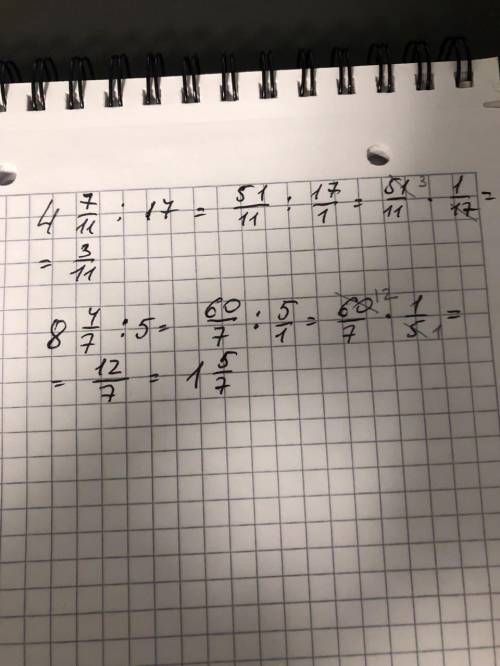 4 7/11 : 17 = 51/11 : 17/1 = 51 3/11 · 1/17 =
= 3/11
8 4/7 : 5 = 60/7 : 5/1 = 60 12/7 · 1/5 1 =
= 12/7 = 1 5/7